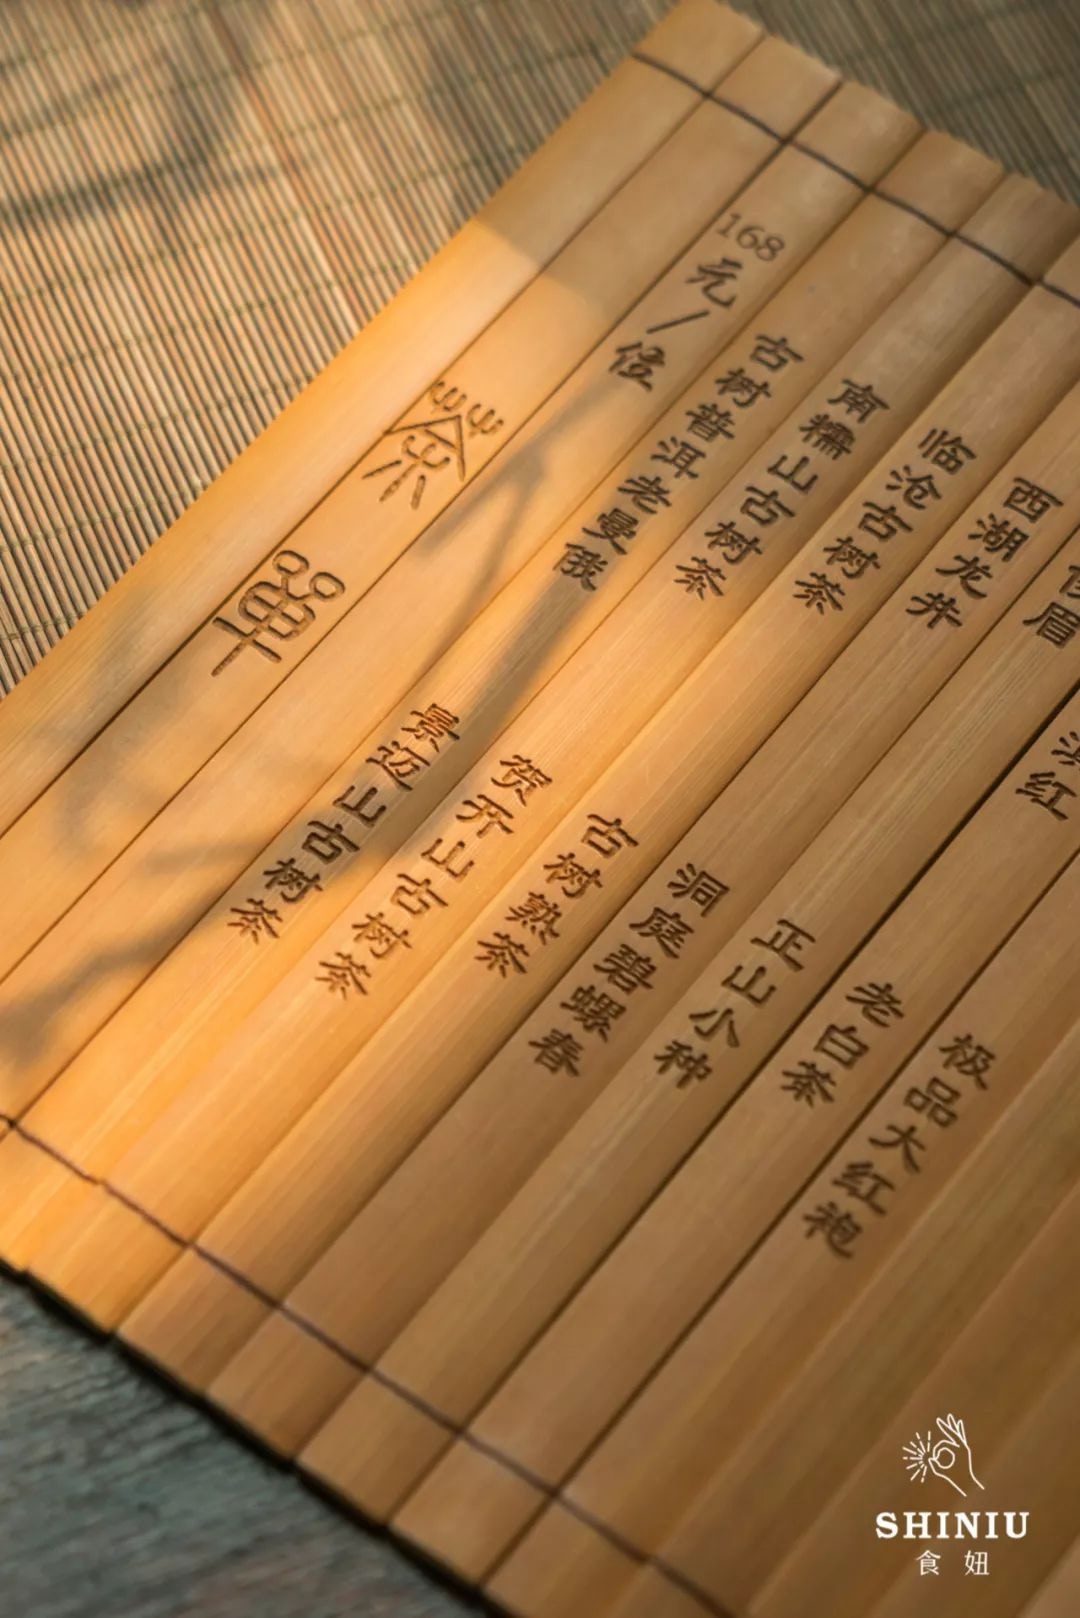 茶單
168元/位
古树普洱老曼俄
景迈山古树茶
南糯山古树茶
贺开山古树茶
临沧古树茶
古树熟茶
西湖龙井
洞庭碧螺春
眉
正山小种
红
老白茶
极品大红袍
SHINIU
食妞